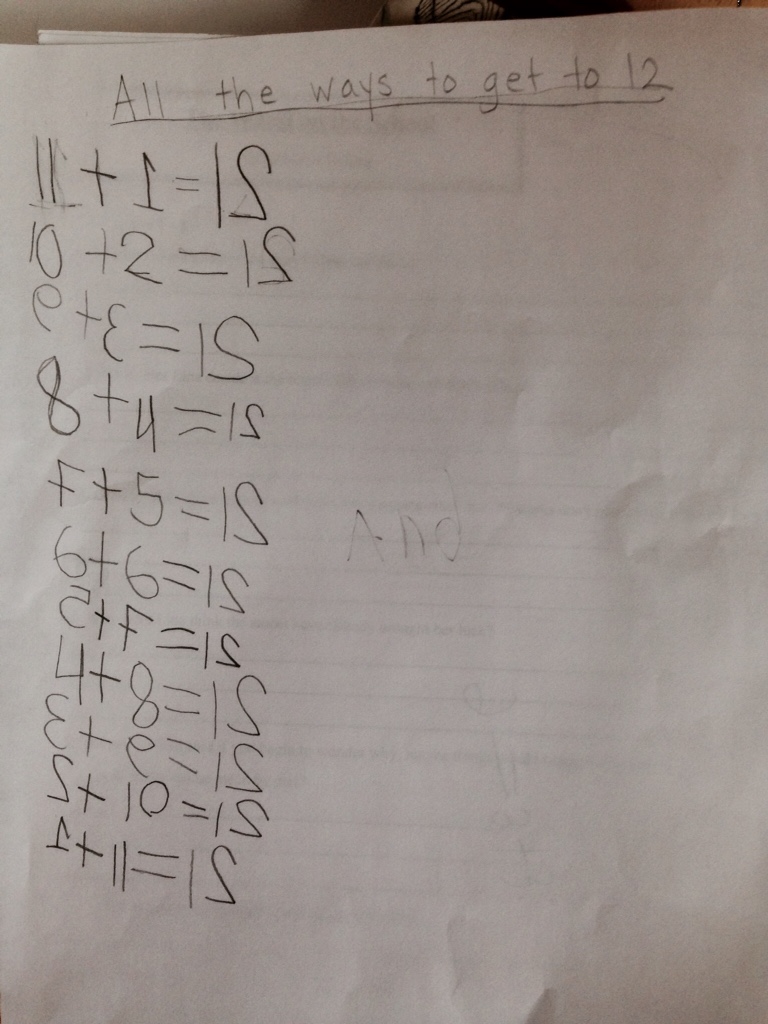 All the ways to get to 12
11 + 1 = 12
10 + 2 = 12
9 + 3 = 12
8 + 4 = 12
7 + 5 = 12
6 + 6 = 12
5 + 7 = 12
4 + 8 = 12
3 + 9 = 12
2 + 10 = 12
1 + 11 = 12
And